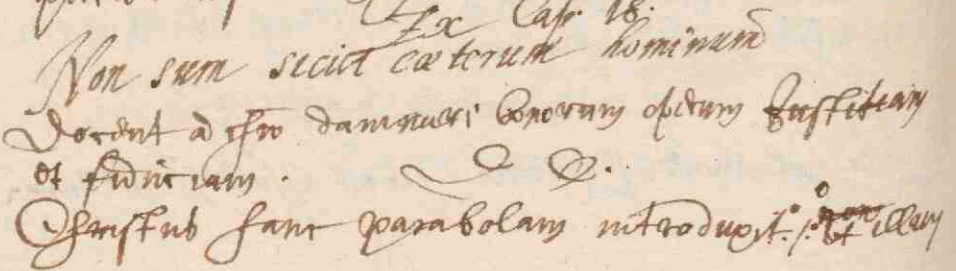 Ex Cap 18.
Non sum sicut cæterum hominum
Docent a chro damnari bonorum operum Justitiam
et fiduciam.
Christus hanc parabolam introduxit. ut illam